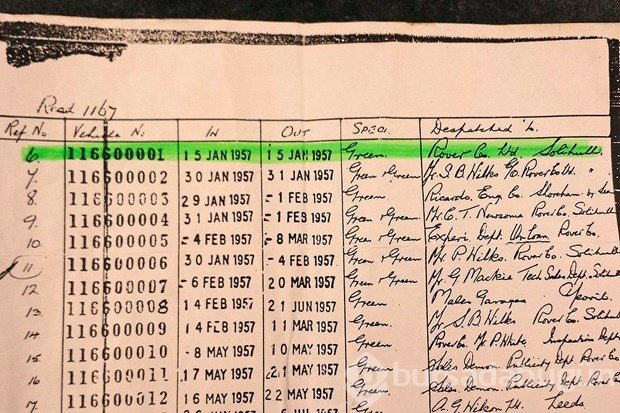 Road 1167
Ref No Vehicle No IN OUT SPEC. Despatched to.
6. 116600001 15 JAN 1957 15 JAN 1957 Green. Rover Co. Ltd. Solihull
7. 116600002 30 JAN 1957 31 JAN 1957 Green Green Mr. S. B. Wilks C/o Rover Co. Ltd. "
8. 116600003 29 JAN 1957 -1 FEB 1957 Green Ricardo. Eng. Co. Shoreham by Sea
9. 116600004 31 JAN 1957 -1 FEB 1957 Green Green Mr. C. T. Newsome Rover Co. Solihull
10. 116600005 -4 FEB 1957 -8 MAR 1957 Green Green Experi. Dept. Rover Co.
11 116600006 30 JAN 1957 -4 FEB 1957 Green. Mr. P. Wilks. Rover Co. Solihull
12. 116600007 -6 FEB 1957 20 MAR 1957 Green Green Mr. G Mackie Tech Sales Dept. Solihull
13. 116600008 14 FEB 1957 21 JUN 1957 Green. Males Garages
14. 116600009 14 FEB 1957 11 MAR 1957 Green. Mr. S. B. Wilks Rover Co. Solihull
15 116600010 -8 MAY 1957 -8 MAY 1957 Green. Rover Co. Mr. P. White Inspection Dept
16 116600011 17 MAY 1957 21 MAY 1957 Green. Sales Demon. Publicity Dept Rover Co.
7. 116600012 16 MAY 1957 22 MAY 1957 Green. Sales Demon. Publicity Dept Rover Co.
-2 MAY 1957 Green. A. G. Wilson Leeds